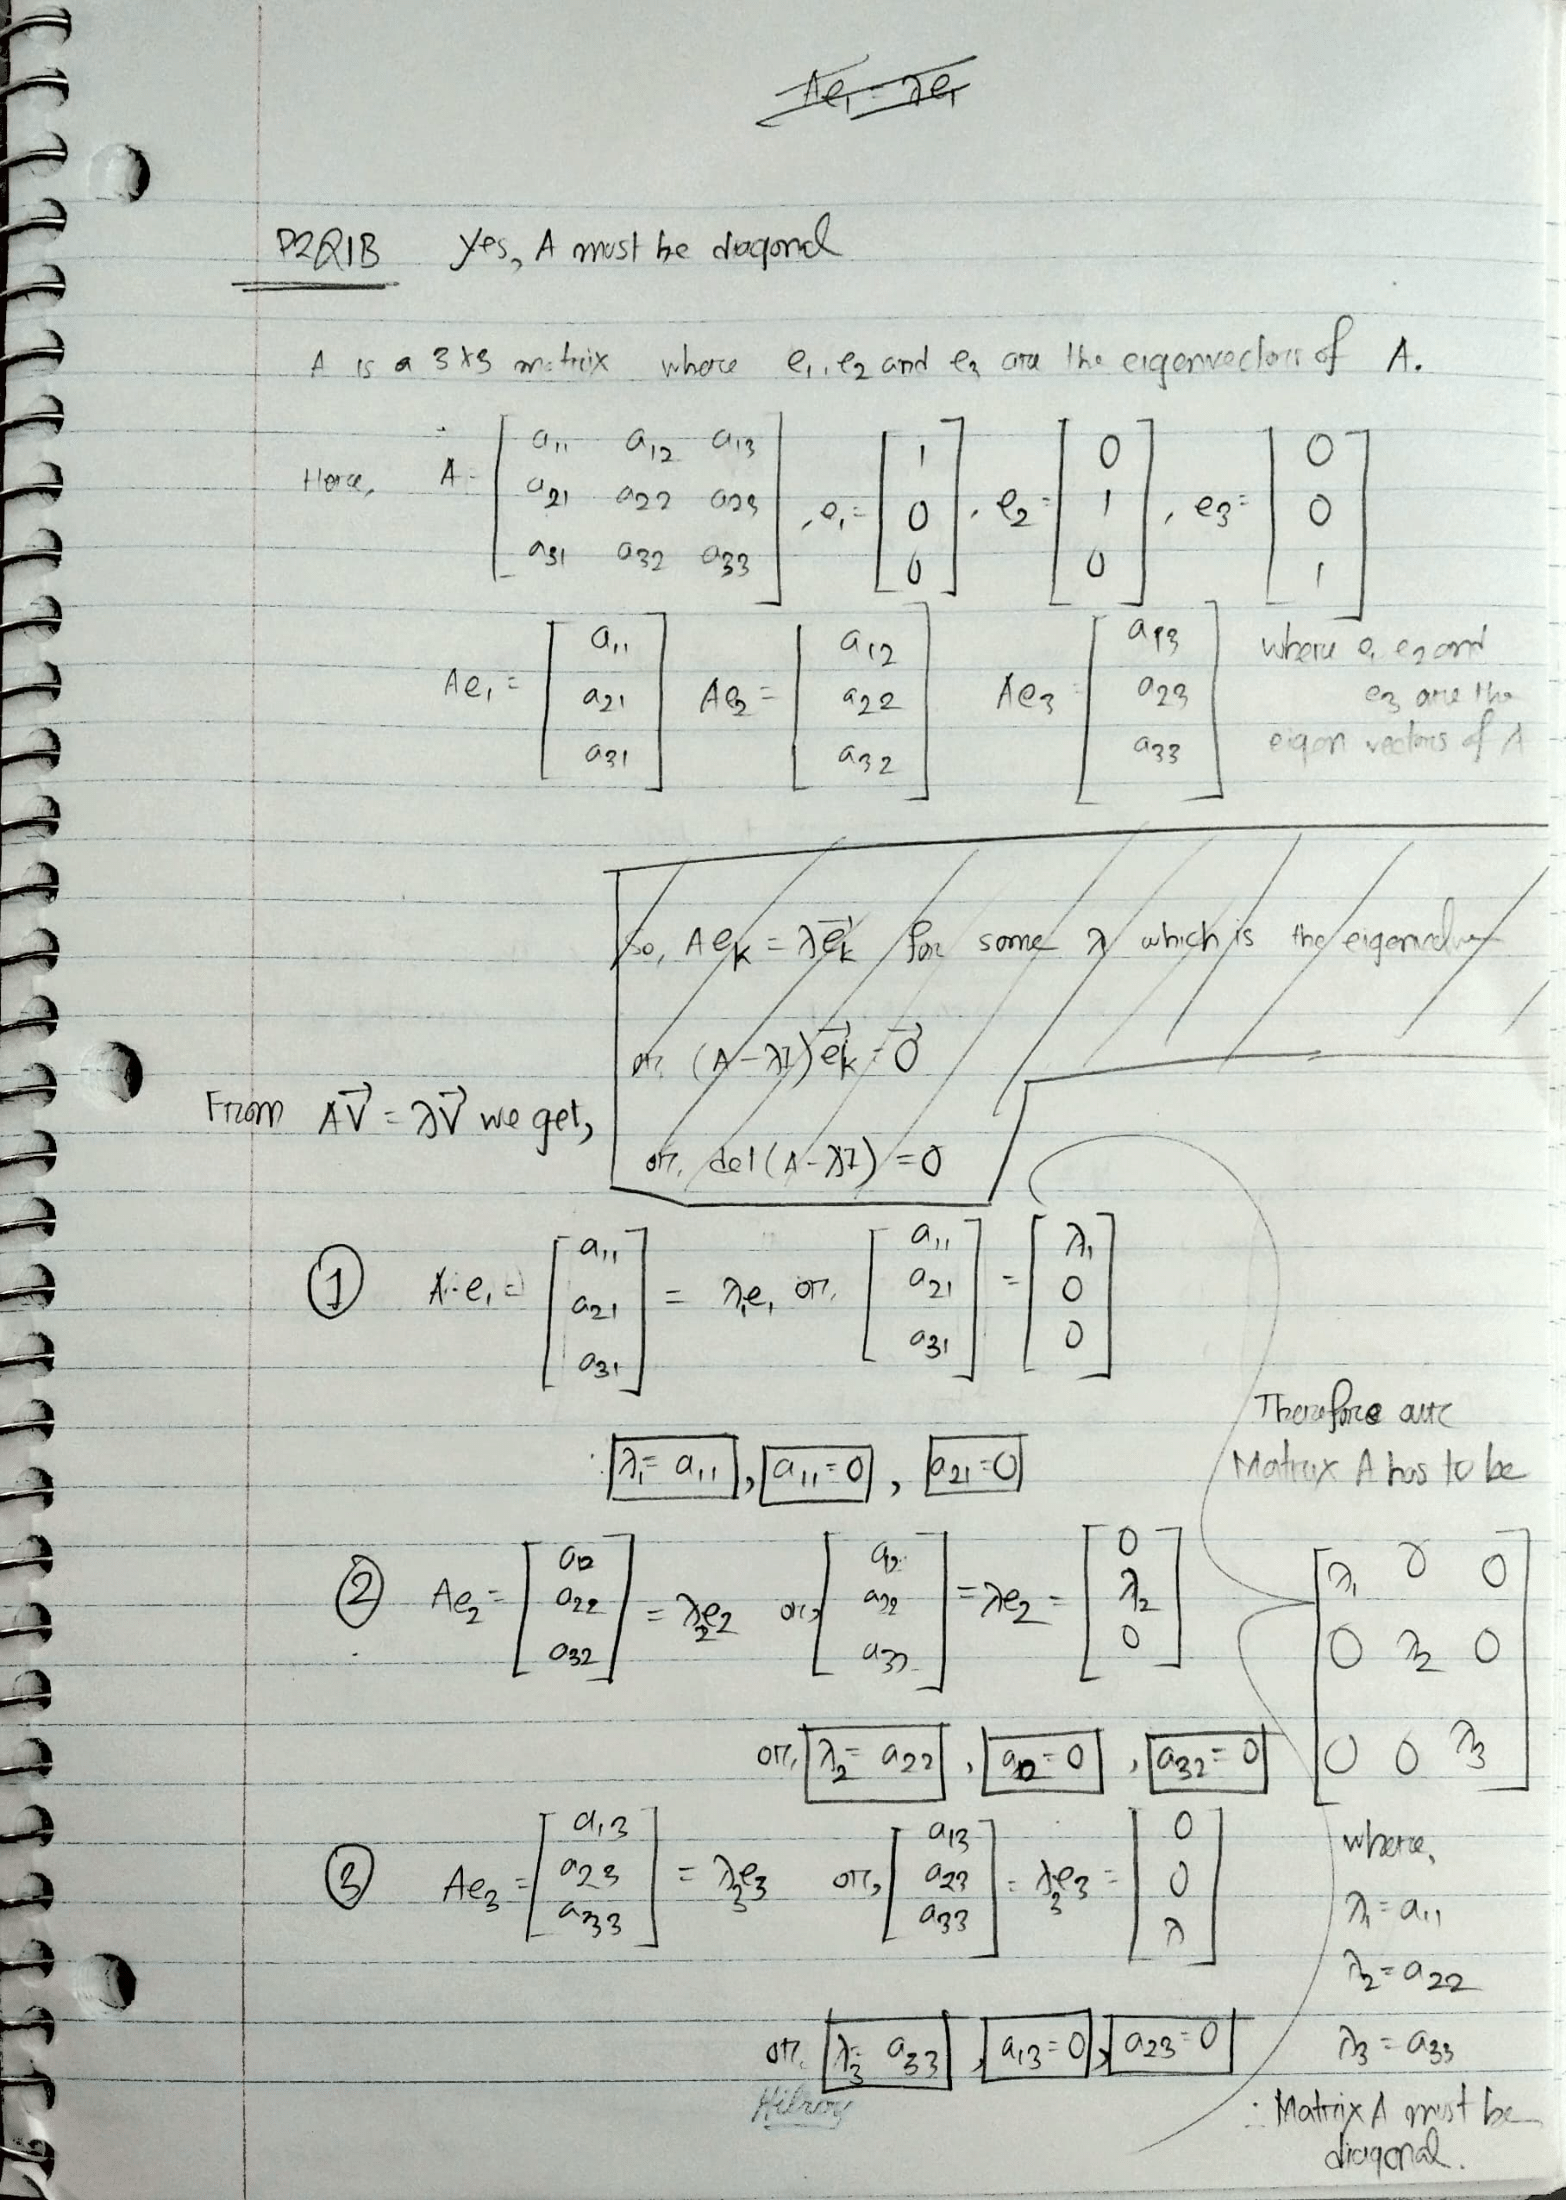 Ae₁ = λe₁
P2Q1B yes, A must be diagonal
A is a 3x3 matrix where e₁, e₂ and e₃ are the eigenvectors of A.
Here, A = [a₁₁ a₁₂ a₁₃; a₂₁ a₂₂ a₂₃; a₃₁ a₃₂ a₃₃], e₁ = [1; 0; 0], e₂ = [0; 1; 0], e₃ = [0; 0; 1]
Ae₁ = [a₁₁; a₂₁; a₃₁] Ae₂ = [a₁₂; a₂₂; a₃₂] Ae₃ = [a₁₃; a₂₃; a₃₃]
where e₁ e₂ and
e₃ are the
eigen vectors of A
So, Aeₖ = λe⃗ₖ for some λ which is the eigenvalue
or, (A-λI)e⃗ₖ = 0⃗
or, det(A-λI) = 0
From AV⃗ = λV⃗ we get,
① A·e₁ = [a₁₁; a₂₁; a₃₁] = λ₁e₁ or, [a₁₁; a₂₁; a₃₁] = [λ₁; 0; 0]
∴ λ₁ = a₁₁, a₁₁ = 0, a₂₁ = 0
② Ae₂ = [a₁₂; a₂₂; a₃₂] = λ₂e₂ or, [a₁₂; a₂₂; a₃₂] = λe₂ = [0; λ₂; 0]
or, λ₂ = a₂₂, a₁₂ = 0, a₃₂ = 0
③ Ae₃ = [a₁₃; a₂₃; a₃₃] = λ₃e₃ or, [a₁₃; a₂₃; a₃₃] = λ₃e₃ = [0; 0; λ]
or, λ₃ = a₃₃, a₁₃ = 0, a₂₃ = 0
Therefore our
Matrix A has to be
[λ₁ 0 0; 0 λ₂ 0; 0 0 λ₃]
where,
λ₁ = a₁₁
λ₂ = a₂₂
λ₃ = a₃₃
∴ Matrix A must be
diagonal.
Hilroy